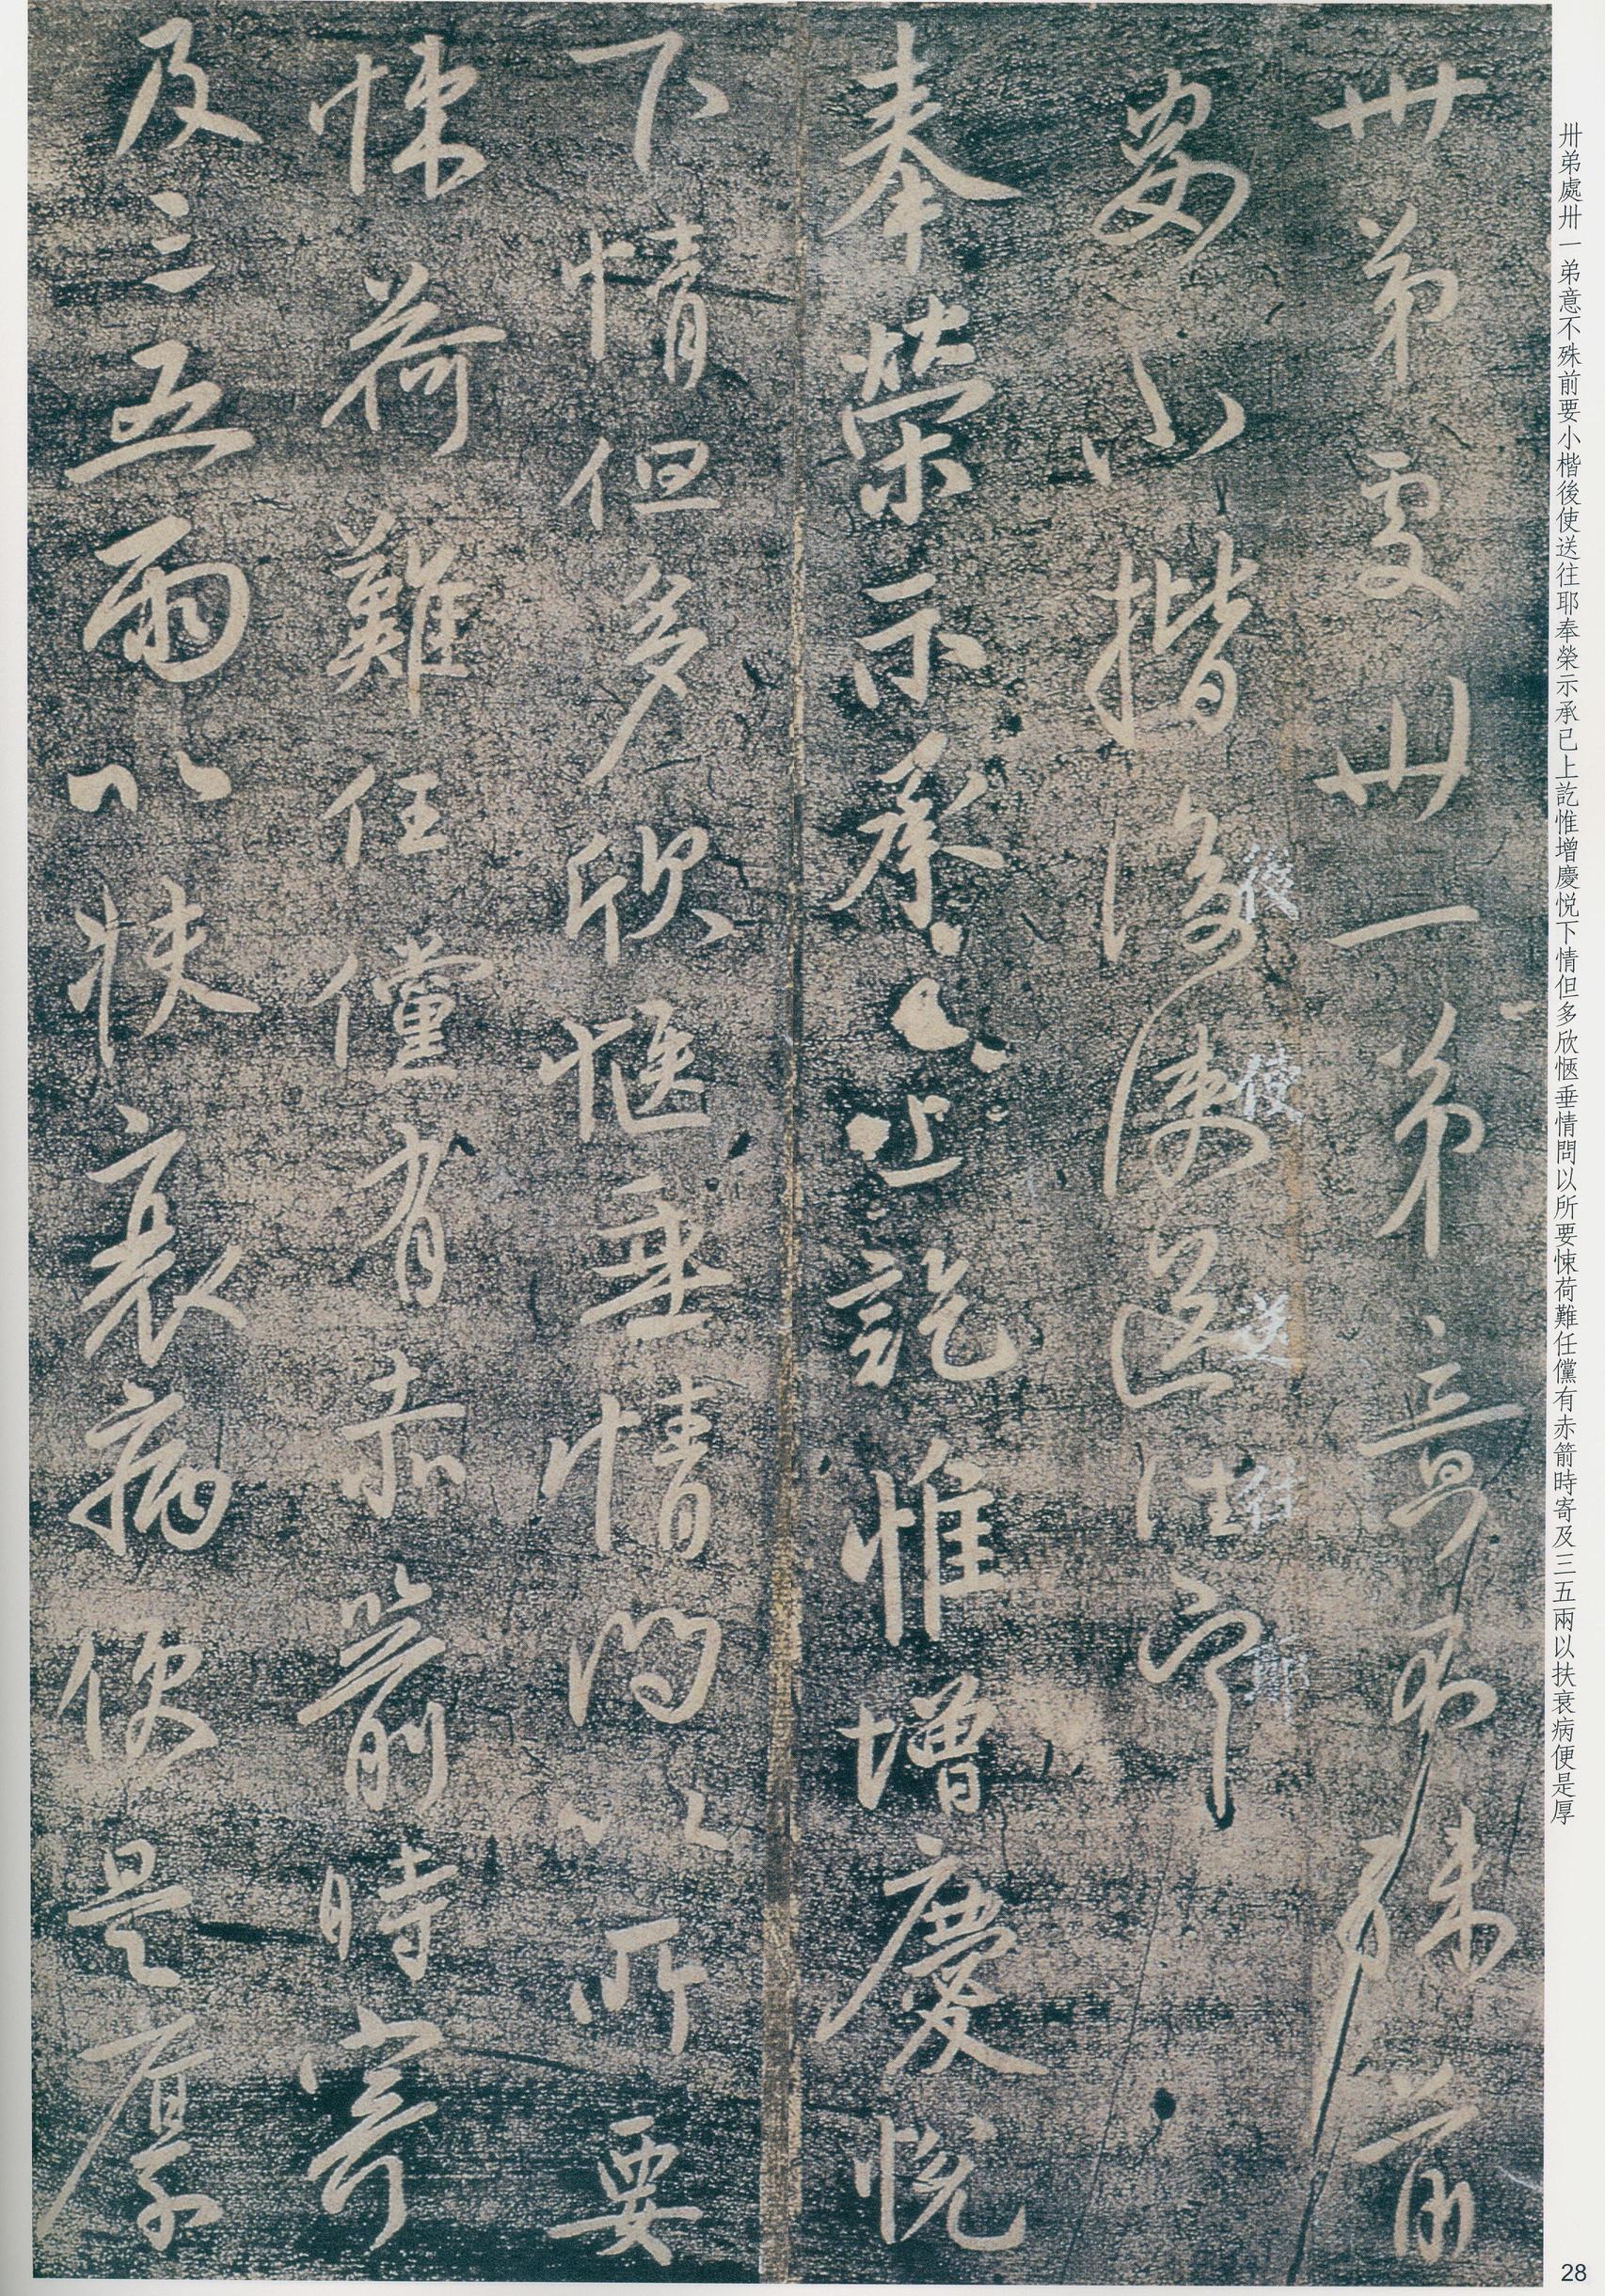 卅弟處卅一弟意不殊前
要小楷後使送往耶
奉榮示承已上訖惟增慶悅
下情但多欣愜垂情問以所要
悚荷難任儻有赤箭時寄
及三五兩以扶衰病便是厚
後使送往耶
卅弟處卅一弟意不殊前要小楷後使送往耶奉榮示承已上訖惟增慶悦下情但多欣愜垂情問以所要悚荷難任儻有赤箭時寄及三五兩以扶衰病便是厚
28